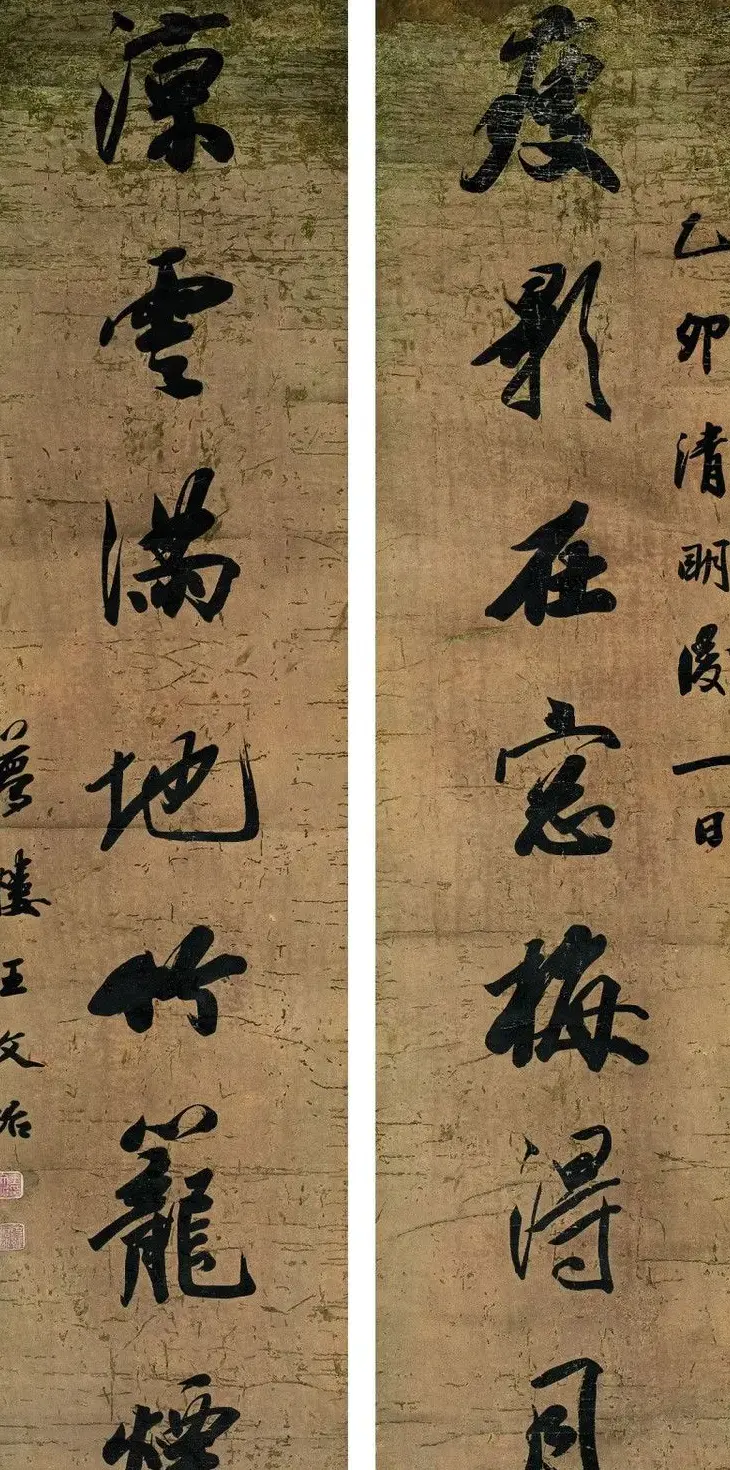 乙卯清明後一日
瘦影在窗梅得月
涼雲滿地竹籠煙
夢樓王文治